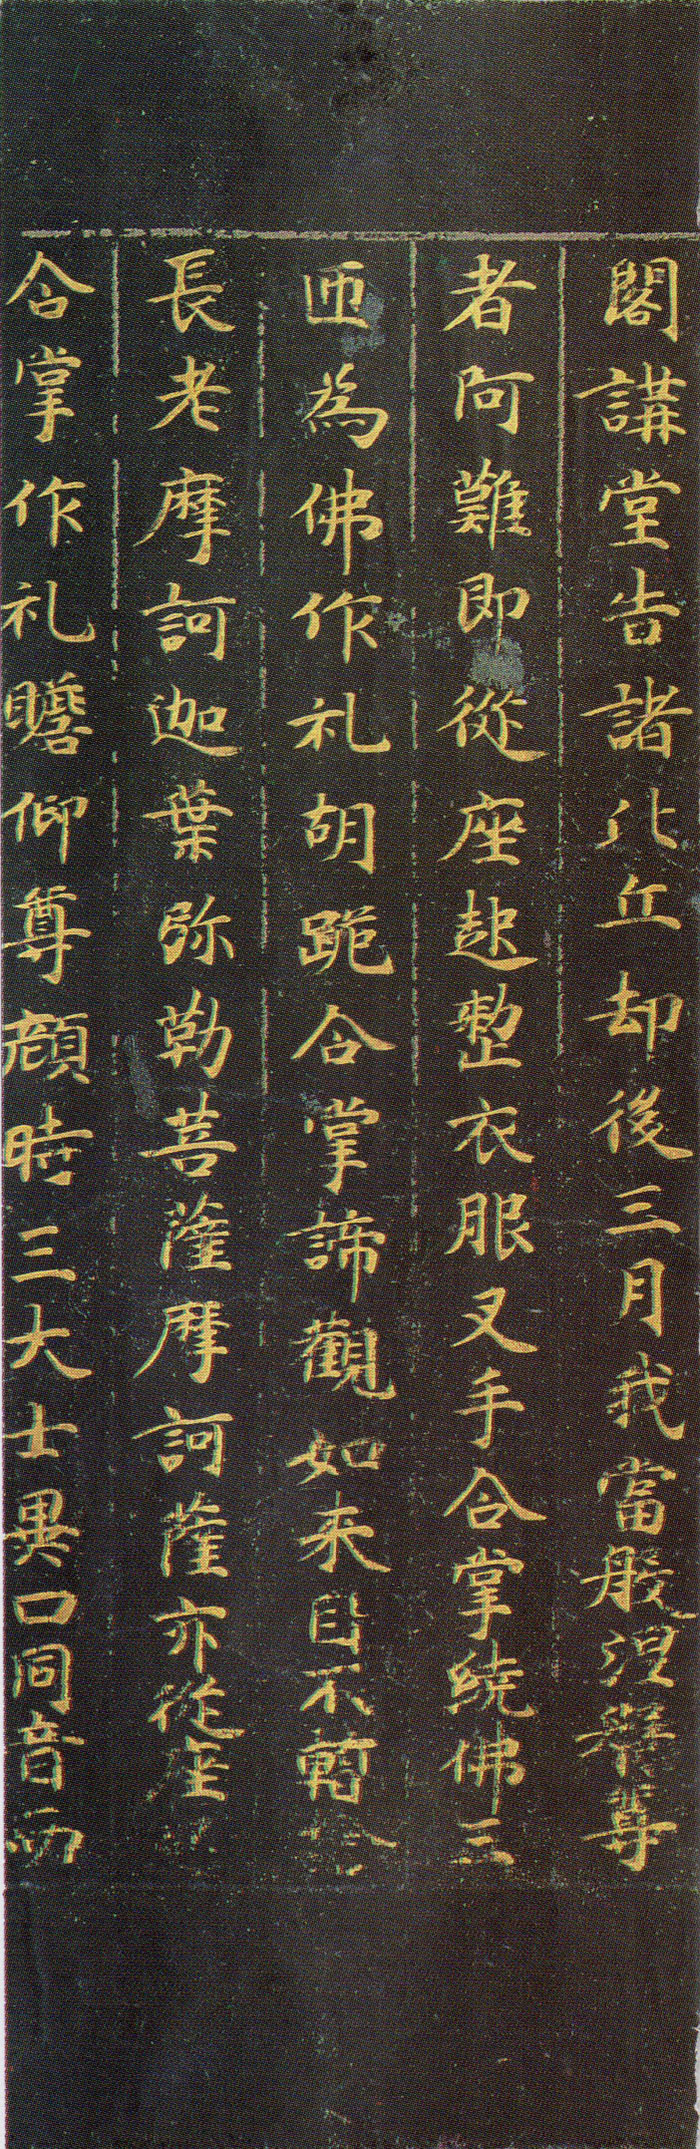 閣講堂告諸比丘却後三月我當般涅槃尊
者阿難即從座起整衣服叉手合掌繞佛三
匝為佛作礼胡跪合掌諦觀如来目不暫
長老摩訶迦葉弥勒菩薩摩訶薩亦從座
合掌作礼瞻仰尊顔時三大士異口同音而